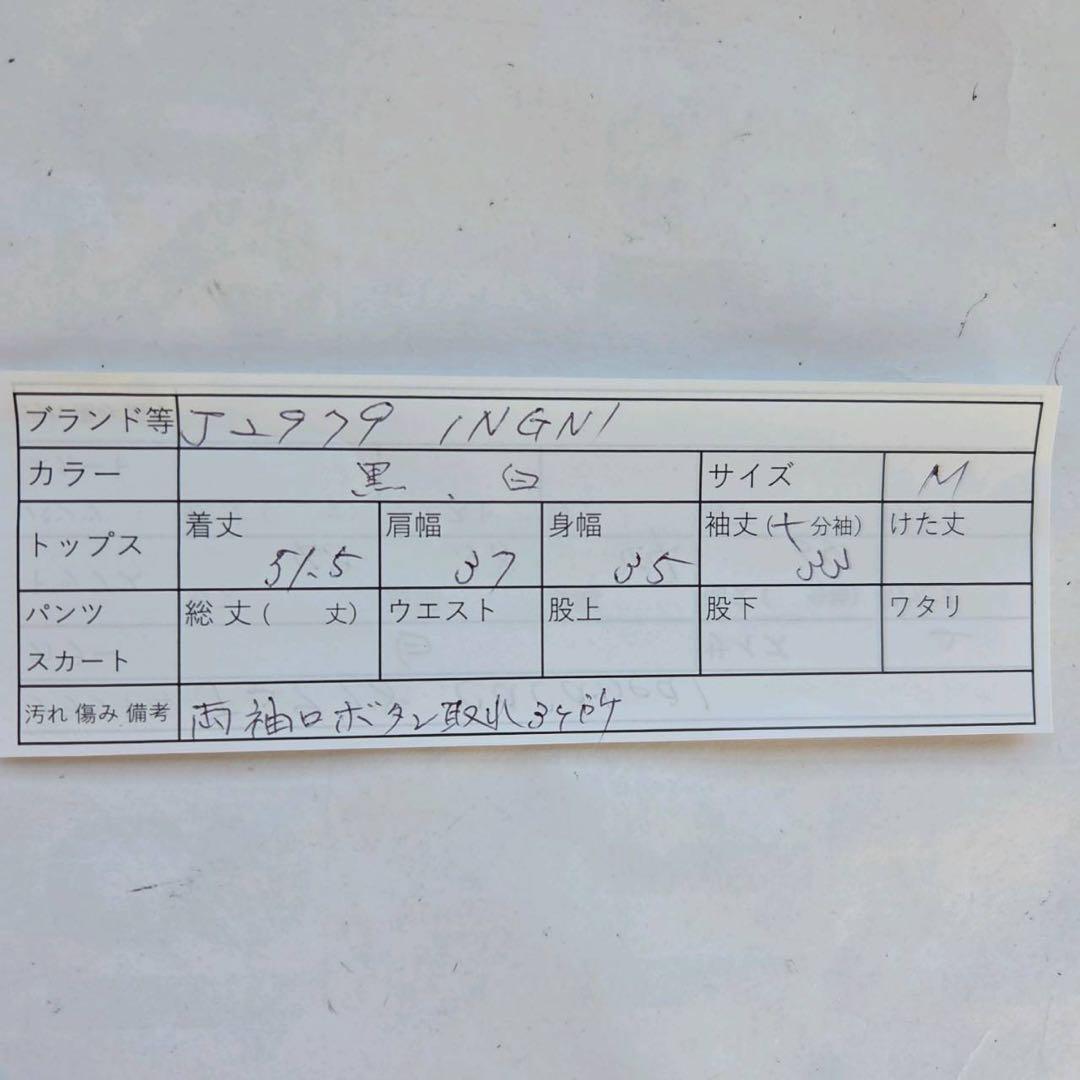 ブランド等 J2979 INGNI
カラー 黒、白 サイズ M
トップス 着丈 51.5 肩幅 37 身幅 35 袖丈(七分袖) 33 けた丈
パンツ スカート 総丈( 丈) ウエスト 股上 股下 ワタリ
汚れ 傷み 備考 両袖口ボタン取れ